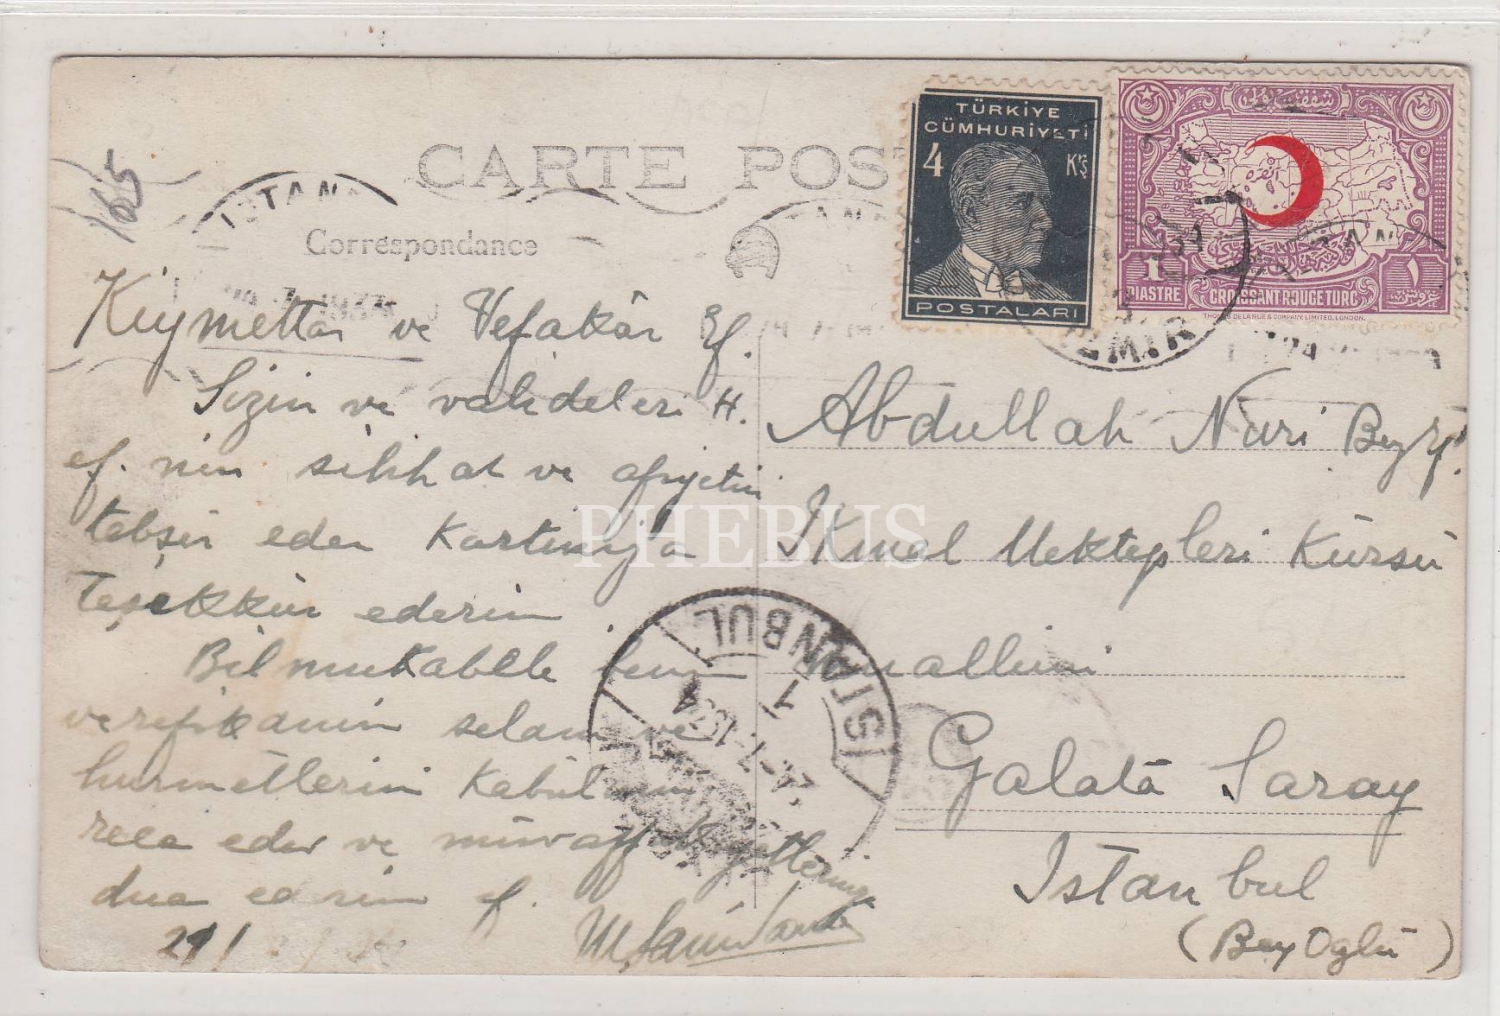 165
CARTE POS
Correspondance
TÜRKİYE
CÜMHURİYETİ
4 K'Ş
POSTALARI
1 PIASTRE
CROISSANT ROUGE TURC
THOMAS DE LA RUE & COMPANY LIMITED, LONDON.
ISTAN
İZMİR
Kıymettar ve Vefakâr Ef.
Sizin ve valideleri H.
ef. nin sıhhat ve afiyetini
tebşir eden kartınıza
Teşekkür ederim
Bilmukabele
ve refikamın selam ve
hürmetlerin kabulunu
reca eder ve müvaffakiyetlerinize
dua ederim ef.
21/
Abdullah Nuri Bey Ef.
İkmal Mektepleri Kürsü
muallimi
Galata Saray
Istanbul
(Bey Oğlu)
ISTANBUL
1
PHEBUS